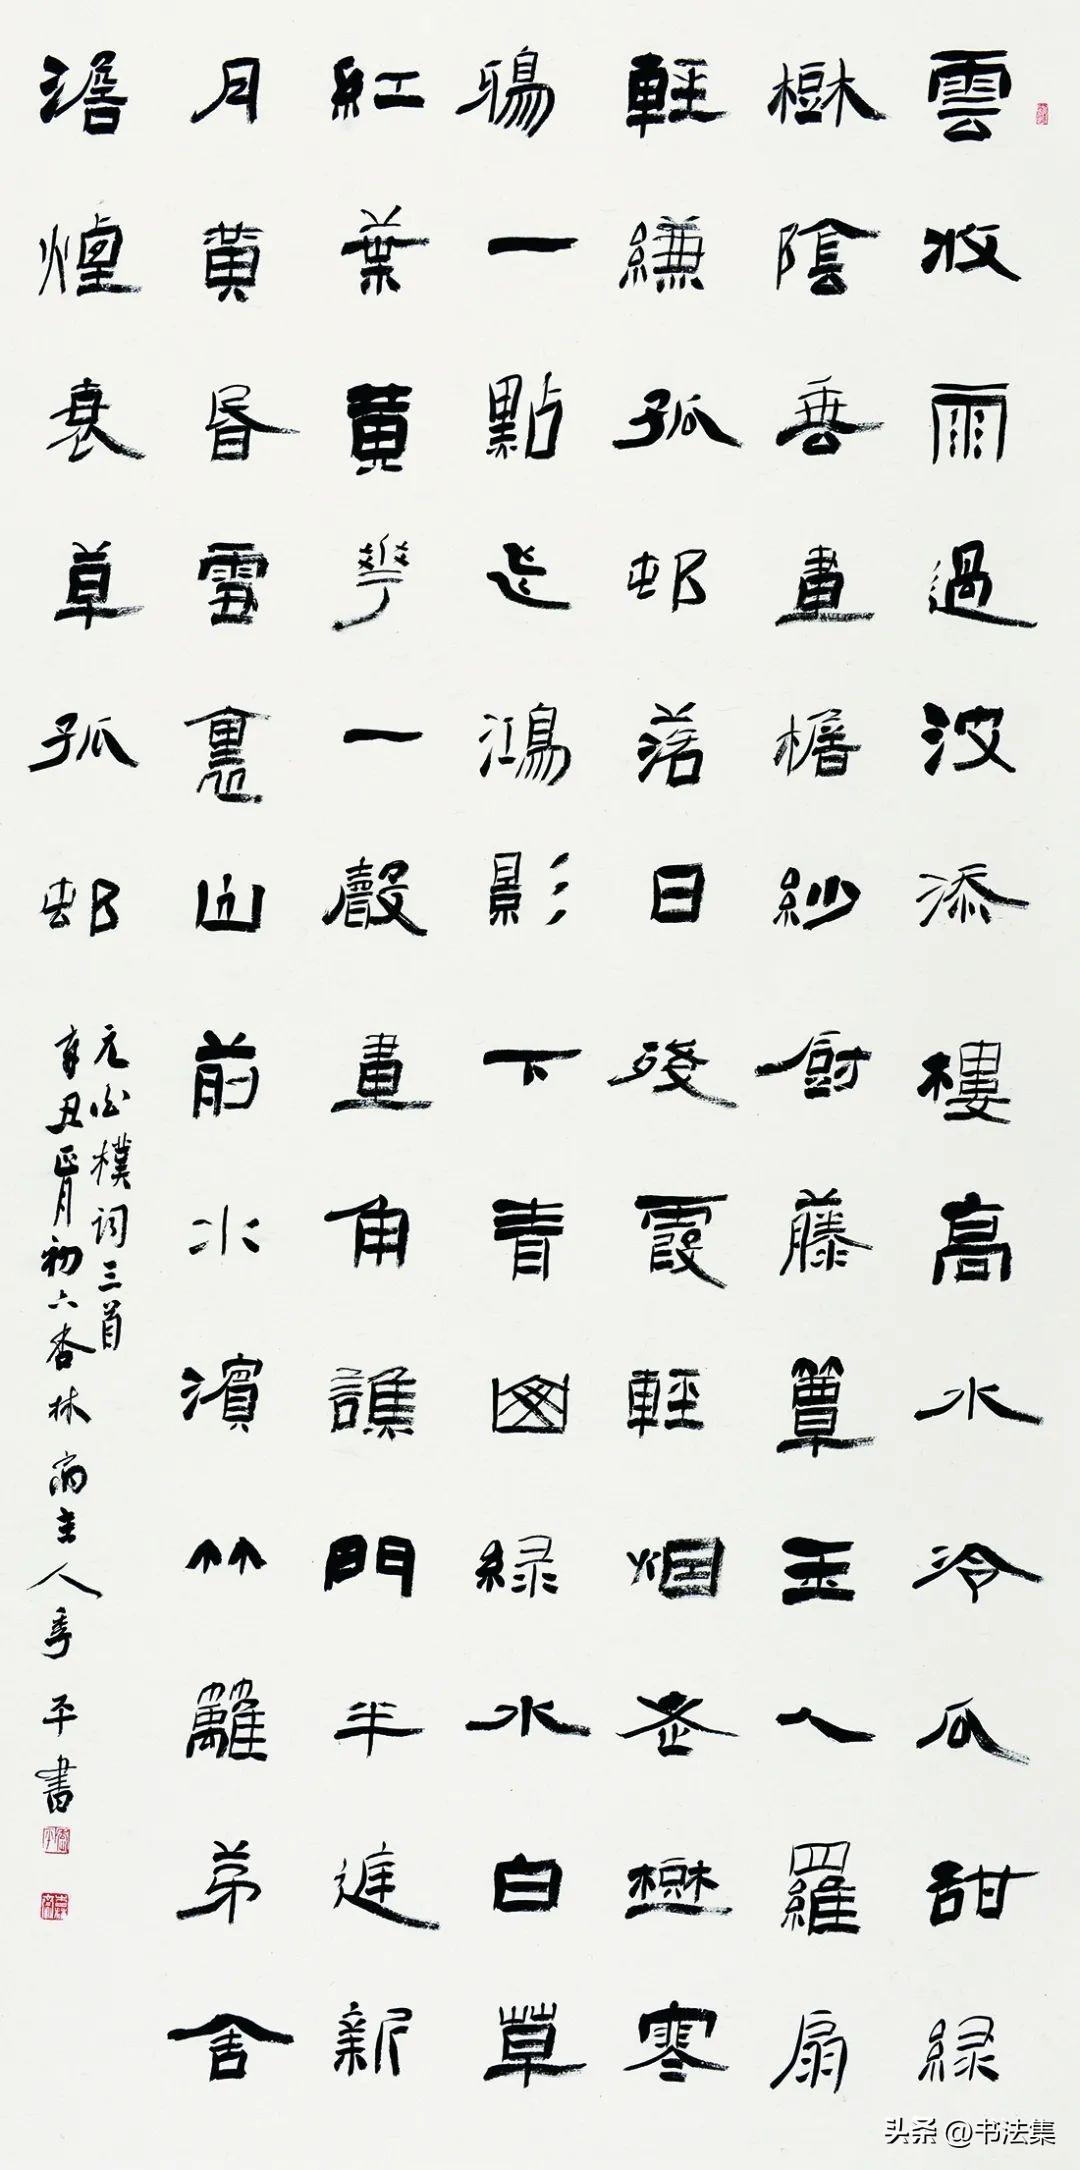 雲收雨過波添樓高水冷瓜甜綠
樹陰垂畫檐紗廚藤簟玉人羅扇
輕縑孤邨落日殘霞輕烟老樹寒
鴉一點飛鴻影下青山綠水白草
紅葉黃華一聲畫角譙門半庭新
月黃昏雪裏山前水濱竹籬茅舍
澹煙衰草孤邨
元白樸詞三首
辛丑正月初六杏林齋主人季平書
头条 @书法集